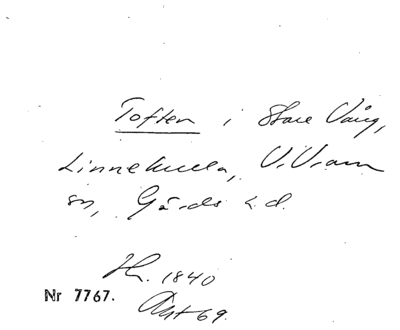 Toften i Stare Vång,
Linnekulla, V. Vram
sn, Gärds h.d.
Hr. 1840
Nr 7767.
Akt 69.